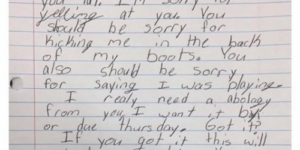 you
yelling at you. You
should be sorry for
kicking me in the back
of my boots. You
also should be sorry
for saying I was playing.
I realy need a abology
from you I want it by
or due thursday. Got it?
If you got it this will